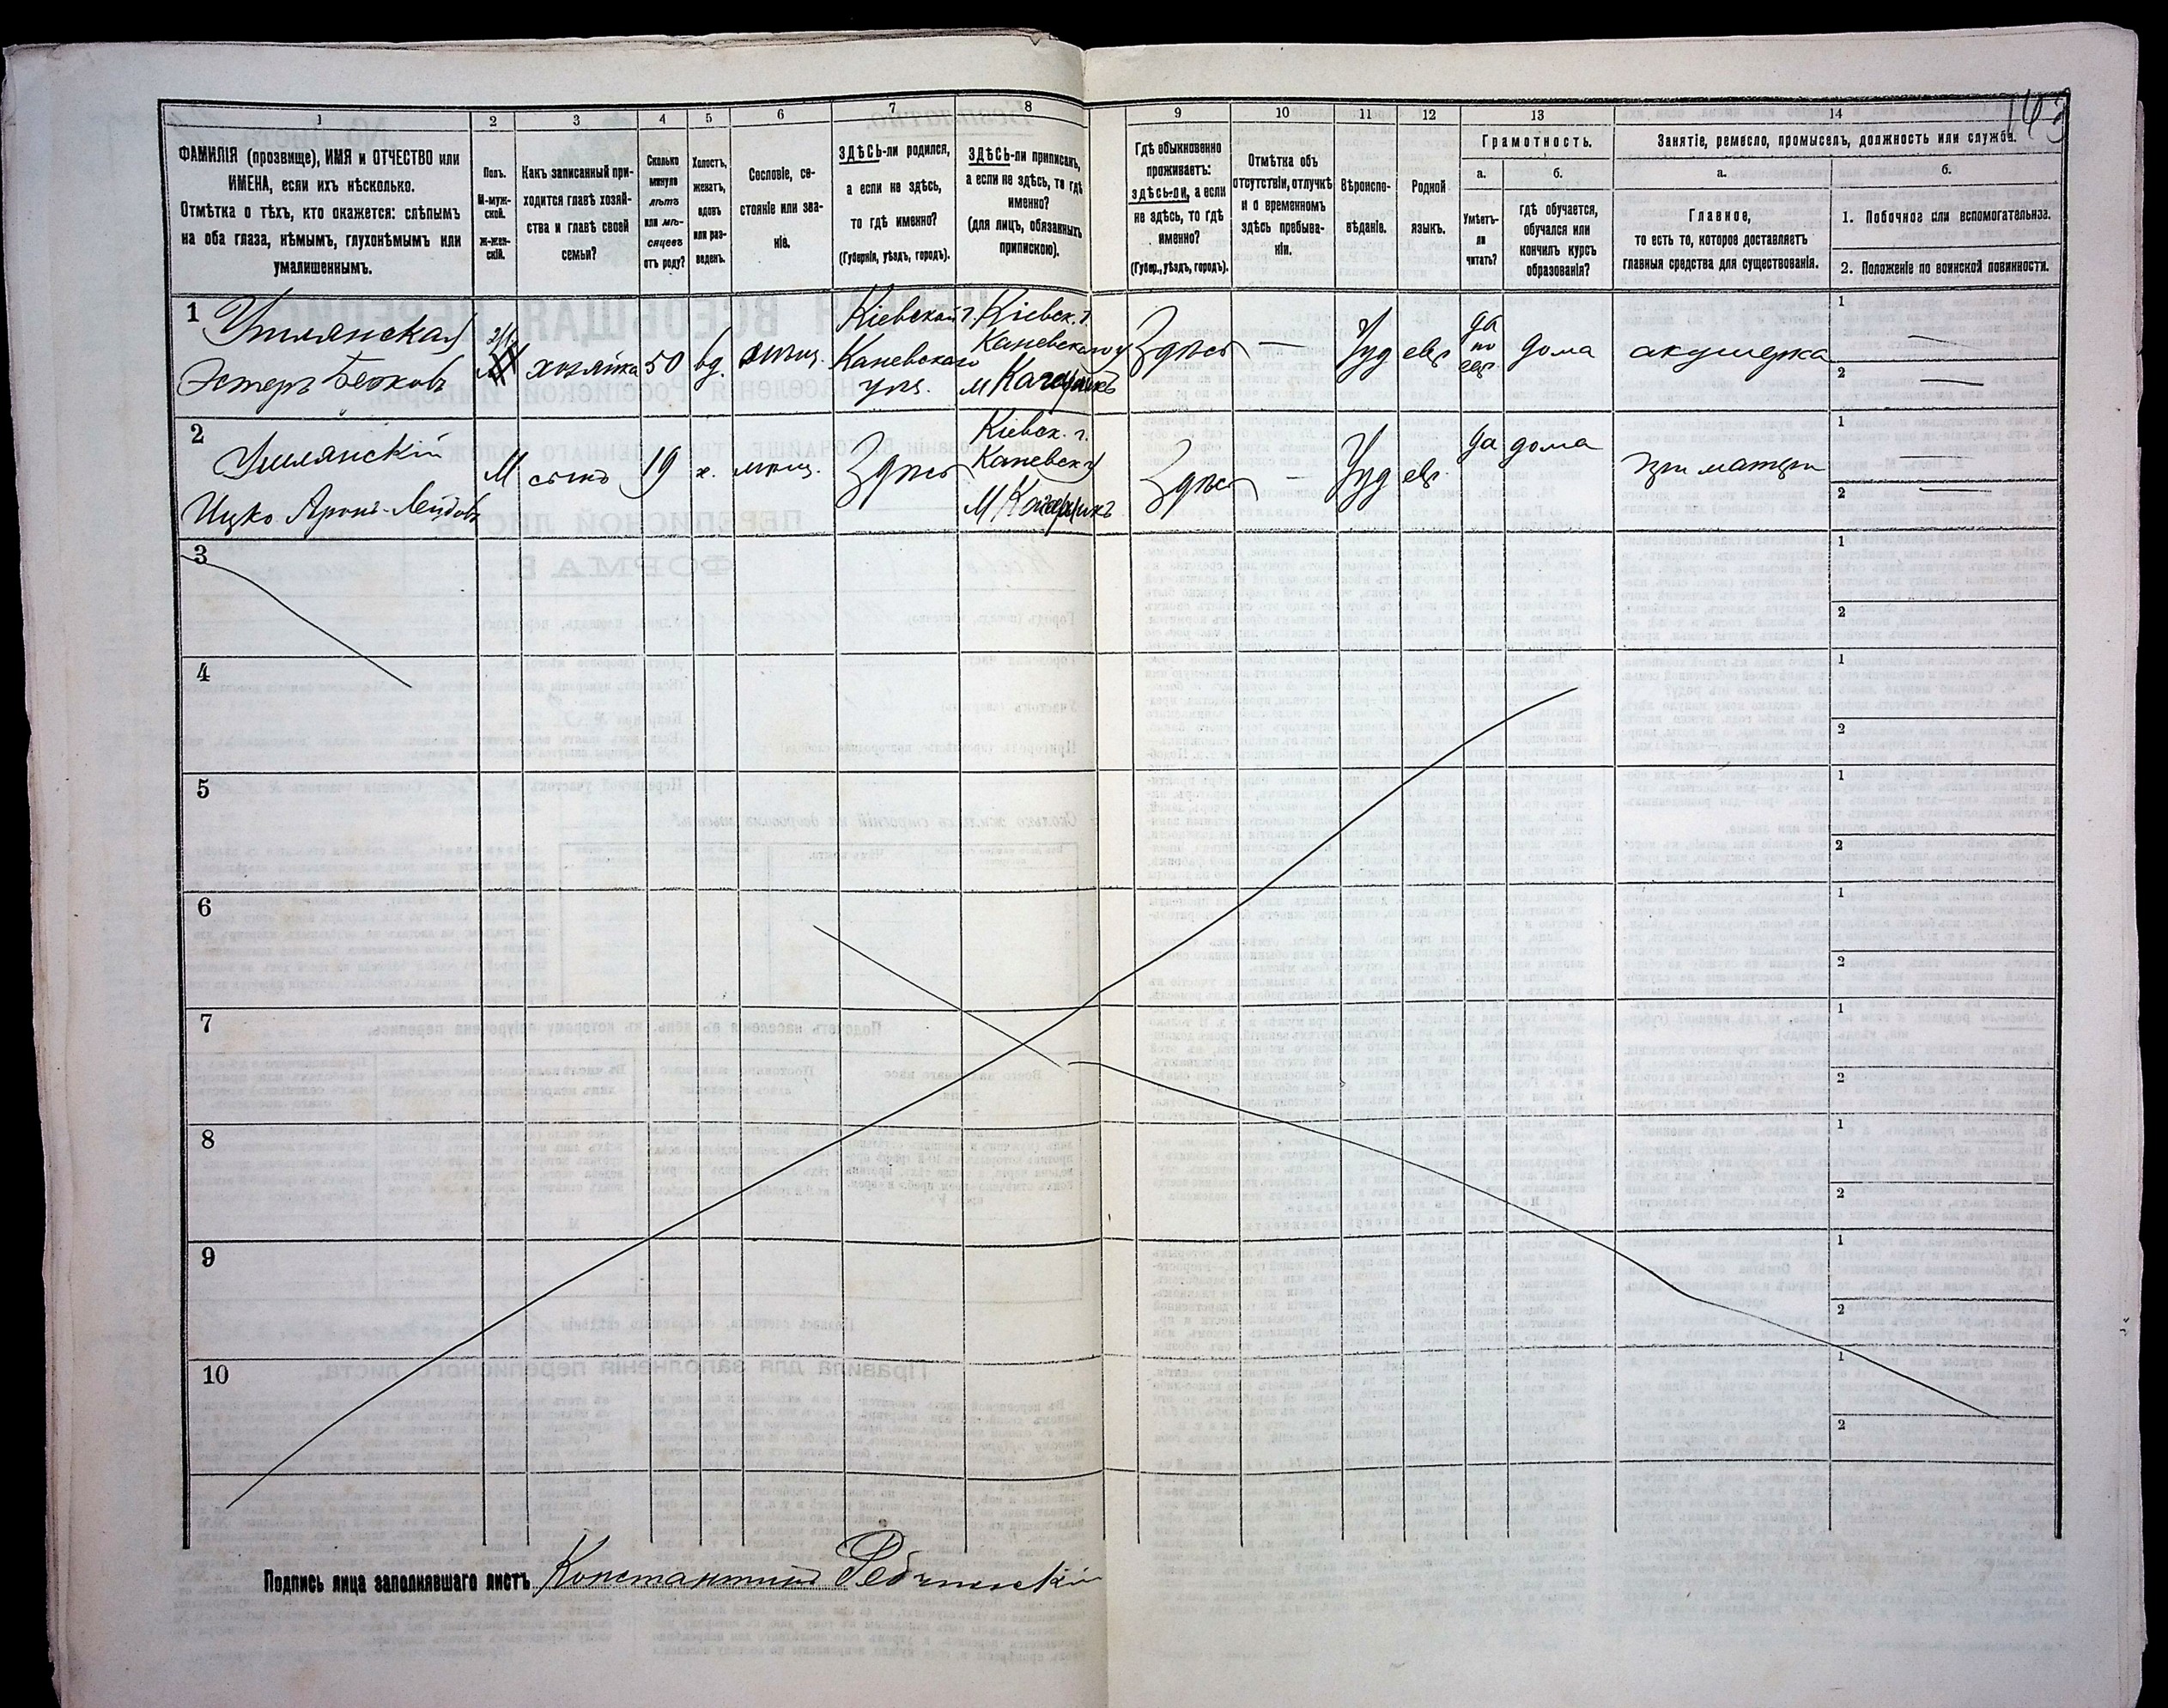 143
1
2
3
4
5
6
7
8
9
10
11
12
13
14
ФАМИЛІЯ (прозвище), ИМЯ и ОТЧЕСТВО или
ИМЕНА, если ихъ нѣсколько.
Отмѣтка о тѣхъ, кто окажется: слѣпымъ
на оба глаза, нѣмымъ, глухонѣмымъ или
умалишеннымъ.
Полъ.
М-муж-
ской.
ж-жен-
скій.
Какъ записанный при-
ходится главѣ хозяй-
ства и главѣ своей
семьи?
Сколько
минуло
лѣтъ
или мѣ-
сяцевъ
отъ роду?
Холостъ,
женатъ,
вдовъ
или раз-
веденъ.
Сословіе, со-
стояніе или зва-
ніе.
ЗДѢСЬ-ли родился,
а если не здѣсь,
то гдѣ именно?
(Губернія, уѣздъ, городъ).
ЗДѢСЬ-ли приписанъ,
а если не здѣсь, то гдѣ
именно?
(для лицъ, обязанныхъ
припискою).
Гдѣ обыкновенно
проживаетъ:
ЗДѢСЬ-ли, а если
не здѣсь, то гдѣ
именно?
(Губер., уѣздъ, городъ).
Отмѣтка объ
отсутствіи, отлучкѣ
и о временномъ
здѣсь пребыва-
ніи.
Вѣроиспо-
вѣданіе.
Родной
языкъ.
Грамотность.
а.
Умѣетъ-
ли
читать?
б.
гдѣ обучается,
обучался или
кончилъ курсъ
образованія?
Занятіе, ремесло, промыселъ, должность или служба.
а.
Главное,
то есть то, которое доставляетъ
главныя средства для существованія.
б.
1. Побочное или вспомогательное.
2. Положеніе по воинской повинности.
1
Эстеръ Берковъ
хозяйка
50
вд.
мѣщ.
Кіевской г.
Каневскаго
уѣз.
Кіевск. г.
Каневскаго у
м Кагарлыкъ
Здѣсь
—
Іуд
евр
да
по
евр.
дома
акушерка
1 —
2 —
2
Ицко Аронъ-Лейбовъ
М
сынъ
19
х.
мѣщ.
Здѣсь
Кіевск. г.
Каневск у
М Кагарлыкъ
Здѣсь
—
Іуд
евр.
да
дома
при матери
1 —
2 —
3
1
2
4
1
2
5
1
2
6
1
2
7
1
2
8
1
2
9
1
2
10
1
2
Подпись лица заполнявшаго листъ Константинъ